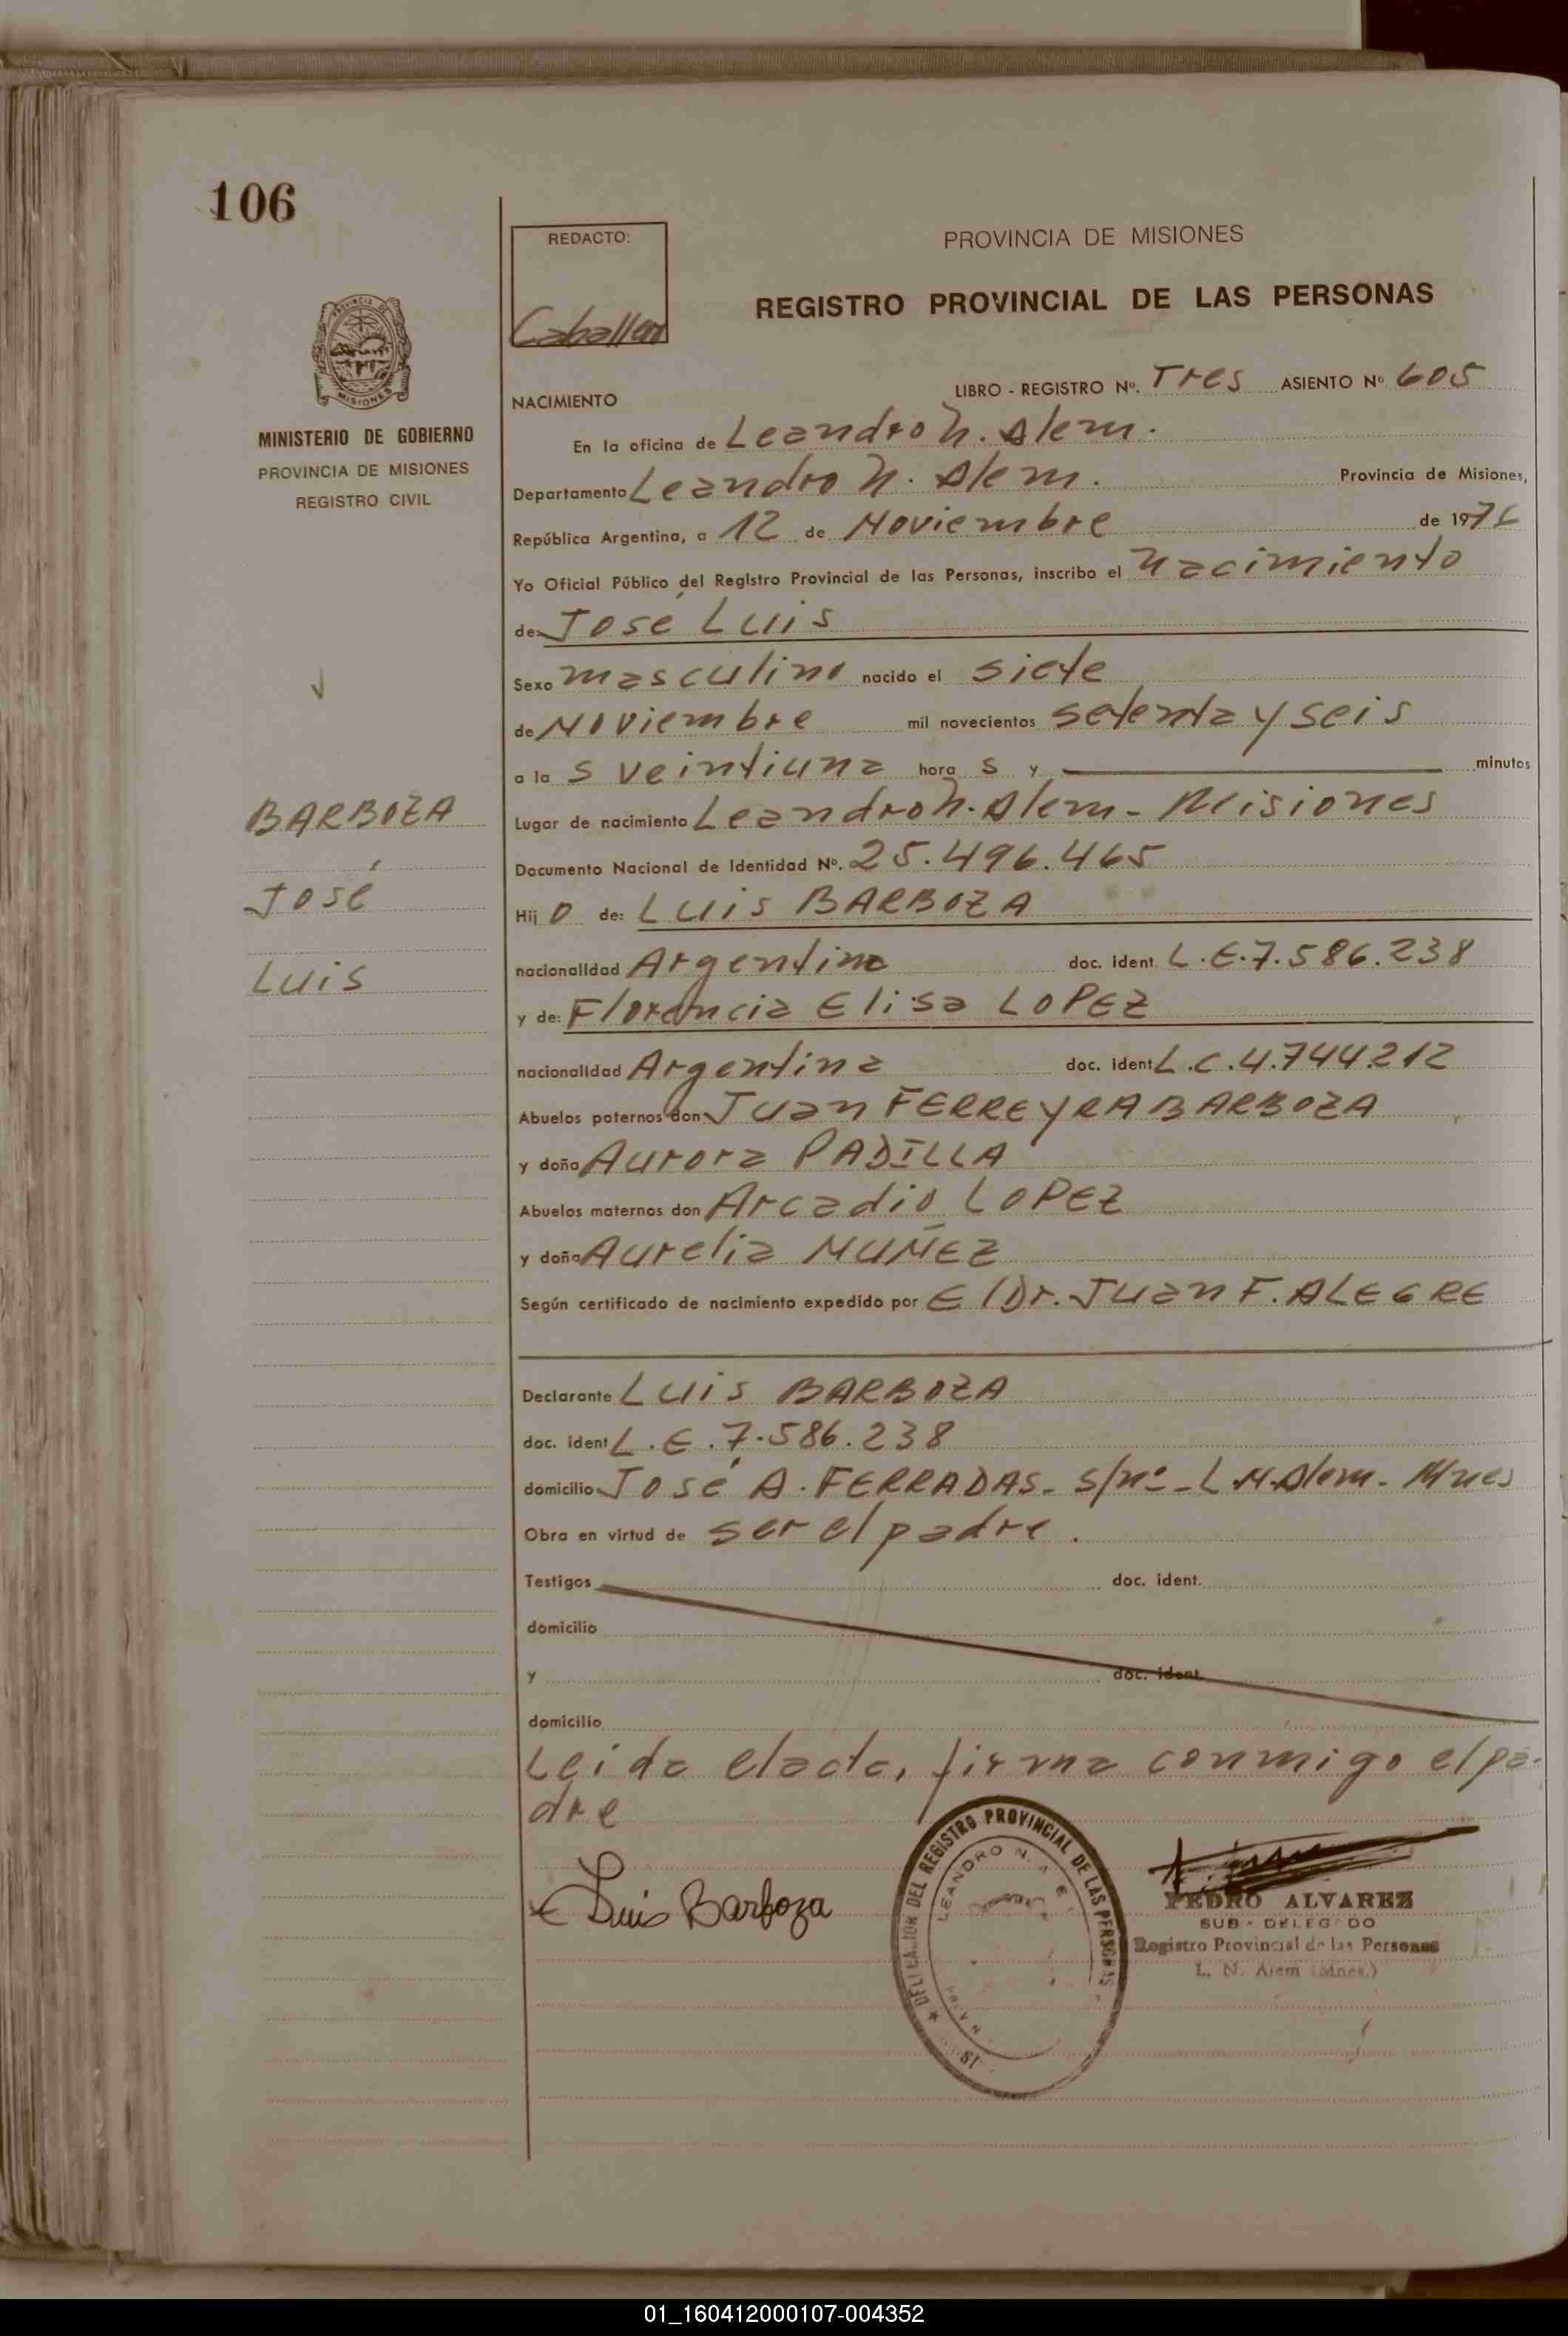 106
REDACTO:
Caballero
PROVINCIA DE MISIONES
REGISTRO PROVINCIAL DE LAS PERSONAS
MINISTERIO DE GOBIERNO
PROVINCIA DE MISIONES
REGISTRO CIVIL
NACIMIENTO
LIBRO - REGISTRO Nº. Tres ASIENTO Nº 605
En la oficina de Leandro N. Alem.
Departamento Leandro N. Alem. Provincia de Misiones,
República Argentina, a 12 de Noviembre de 1976
Yo Oficial Público del Registro Provincial de las Personas, inscribo el nacimiento
de José Luis
Sexo masculino nacido el siete
de Noviembre mil novecientos setenta y seis
a la s veintiuna hora s y minutos
Lugar de nacimiento Leandro N. Alem - Misiones
Documento Nacional de Identidad Nº. 25.496.465
Hij o de: Luis BARBOZA
nacionalidad Argentino doc. ident. L.E.7.586.238
y de: Florencia Elisa LOPEZ
nacionalidad Argentina doc. ident L.C.4.744.212
Abuelos paternos don Juan FERREYRA BARBOZA
y doña Aurora PADILLA
Abuelos maternos don Arcadio LOPEZ
y doña Aurelia MUÑEZ
Según certificado de nacimiento expedido por El Dr. Juan F. ALEGRE
BARBOZA
José
Luis
Declarante Luis BARBOZA
doc. ident L.E.7.586.238
domicilio José A. FERRADAS - s/nº - L.N.Alem - Mnes
Obra en virtud de ser el padre.
Testigos doc. ident.
domicilio
y doc. ident.
domicilio
Leida el acta, firma conmigo el pa-
dre
Luis Barboza
DELEGACION DEL REGISTRO PROVINCIAL DE LAS PERSONAS
LEANDRO N. ALE
PEDRO ALVAREZ
SUB - DELEGADO
Registro Provincial de las Personas
L. N. Alem (Mnes.)
01_160412000107-004352